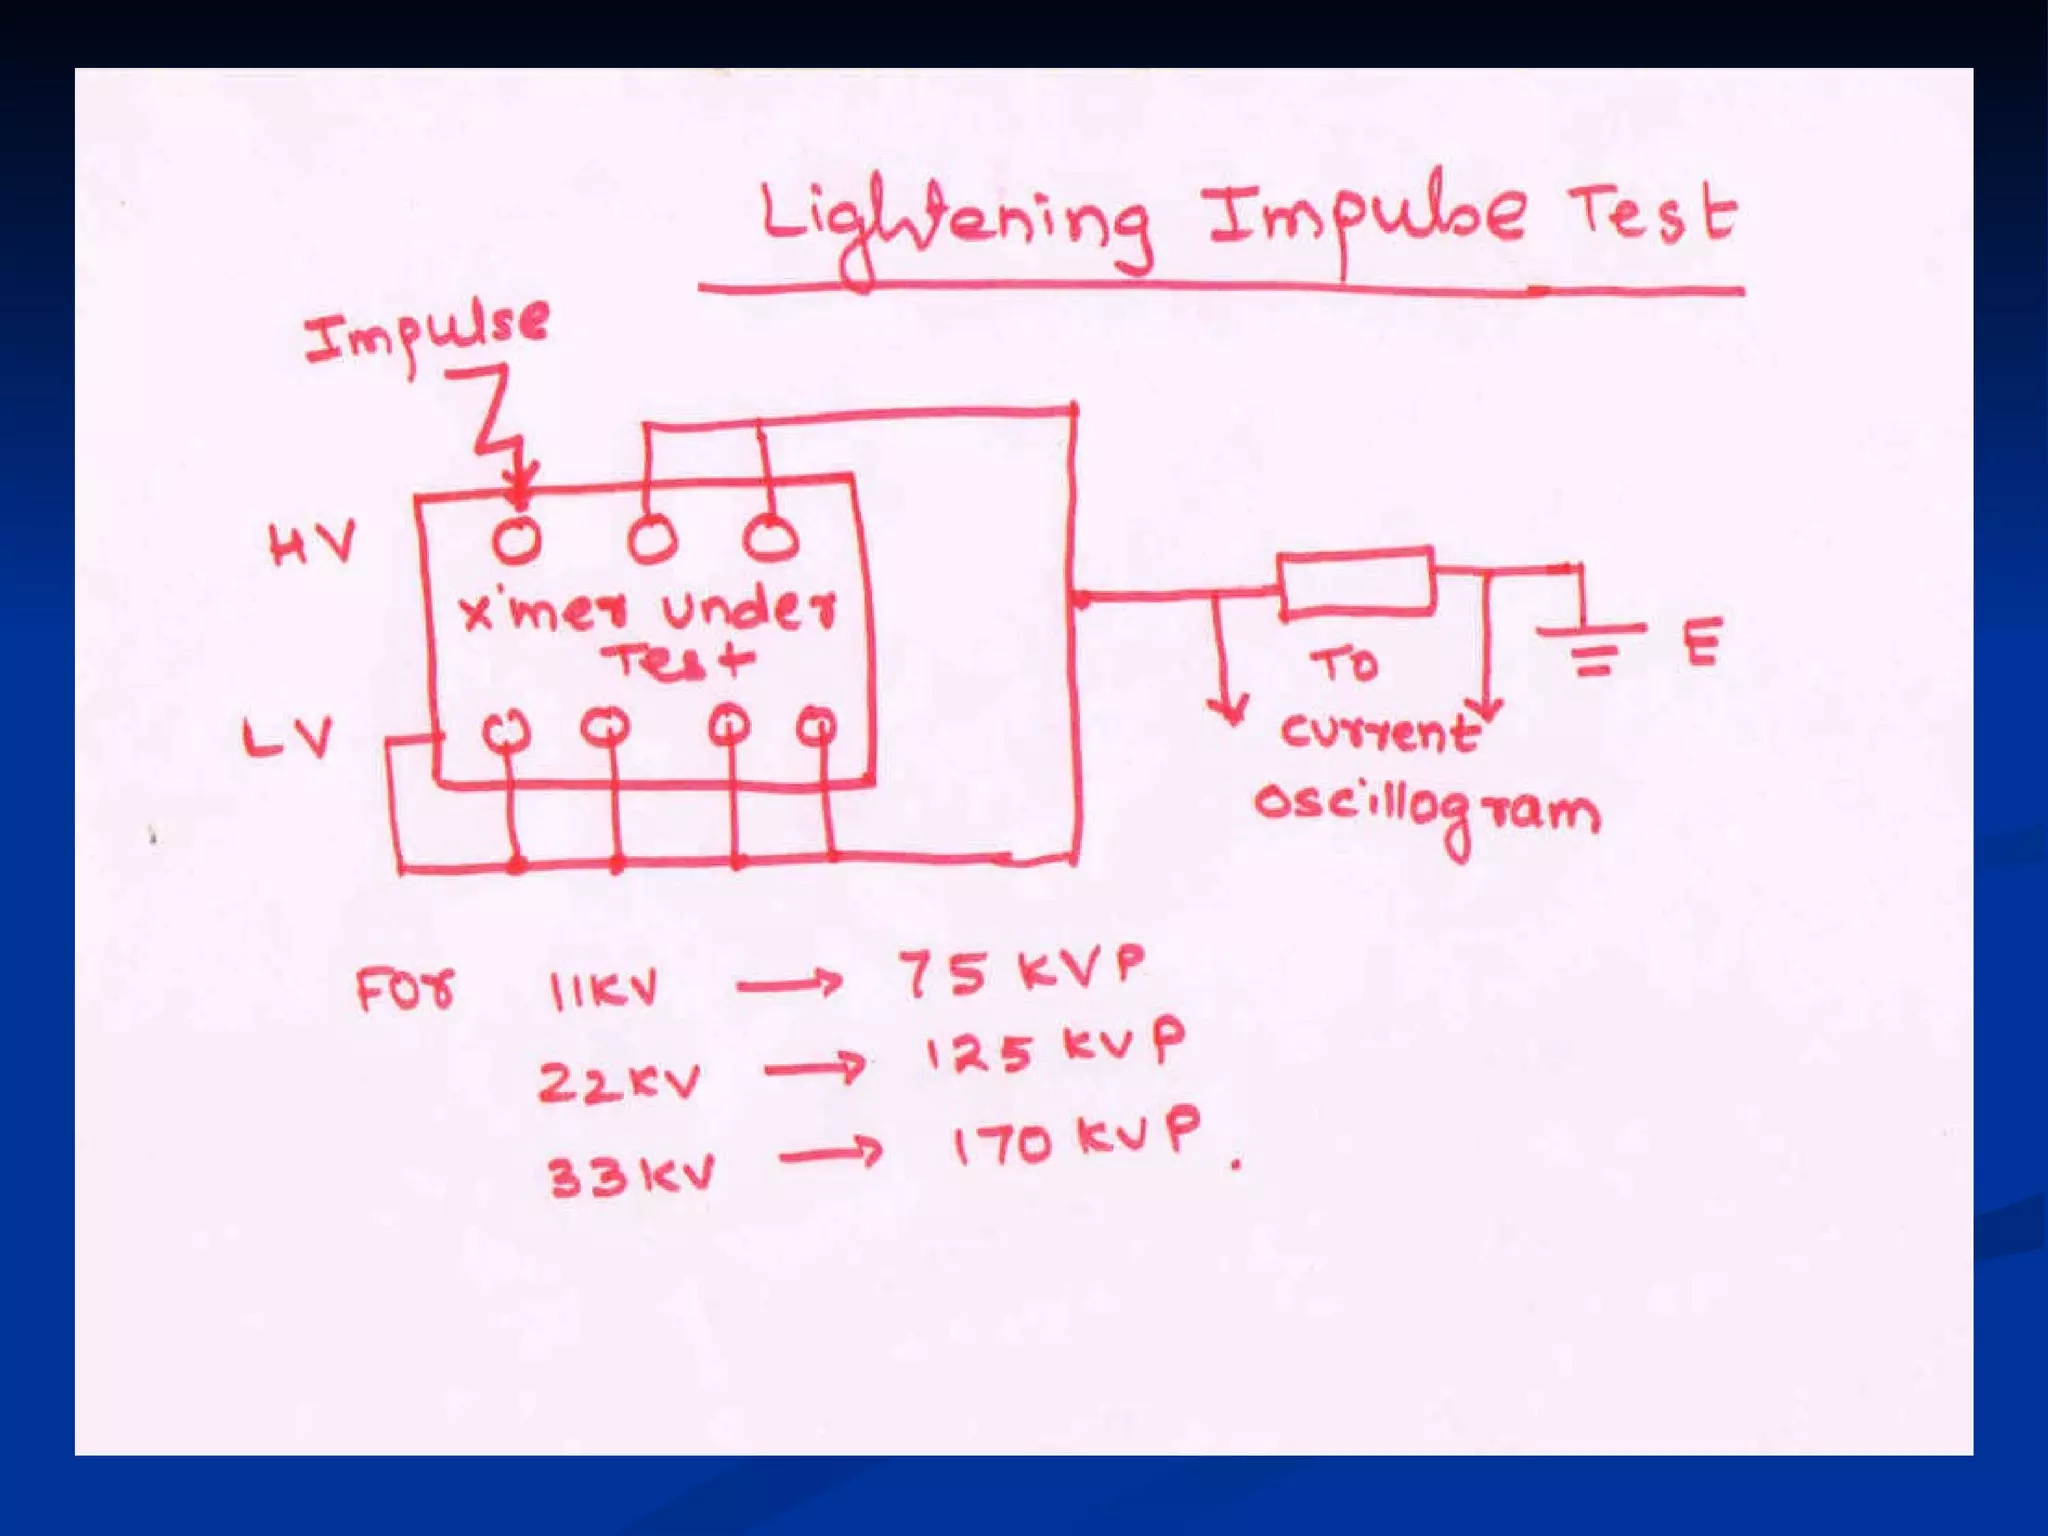 Lightening Impulse Test
Impulse
HV
x'mer under
Test
LV
TO
current
oscillogram
E
For 11KV → 75 KVP
22KV → 125 KVP
33KV → 170 KVP.